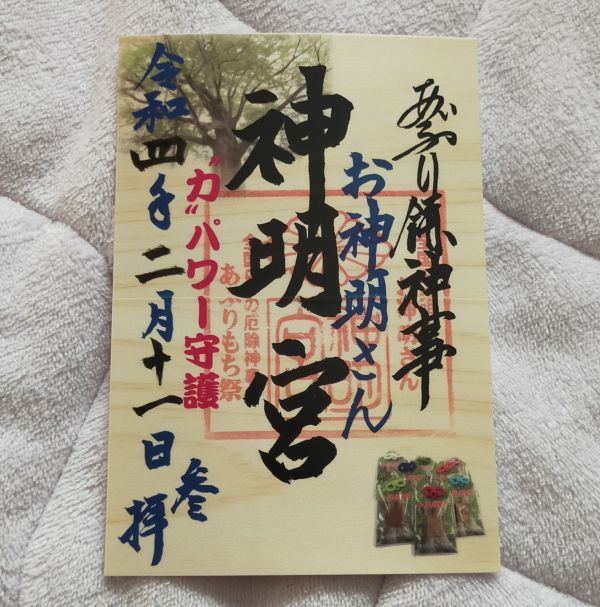 あぶり餅神事
お神明さん
神明宮
"力"パワー守護
の厄除神事
あぶりもち祭
令和四年二月十一日
参拝